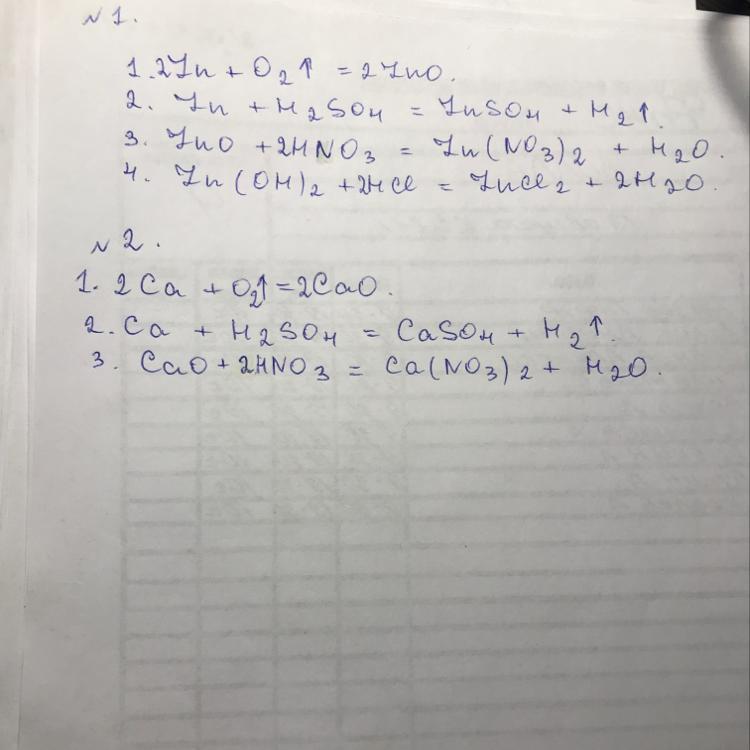 N 1.
1. 2Zn + O2↑ = 2ZnO.
2. Zn + H2SO4 = ZnSO4 + H2↑.
3. ZnO + 2HNO3 = Zn(NO3)2 + H2O.
4. Zn(OH)2 + 2HCl = ZnCl2 + 2H2O.
N 2.
1. 2Ca + O2↑ = 2CaO.
2. Ca + H2SO4 = CaSO4 + H2↑.
3. CaO + 2HNO3 = Ca(NO3)2 + H2O.